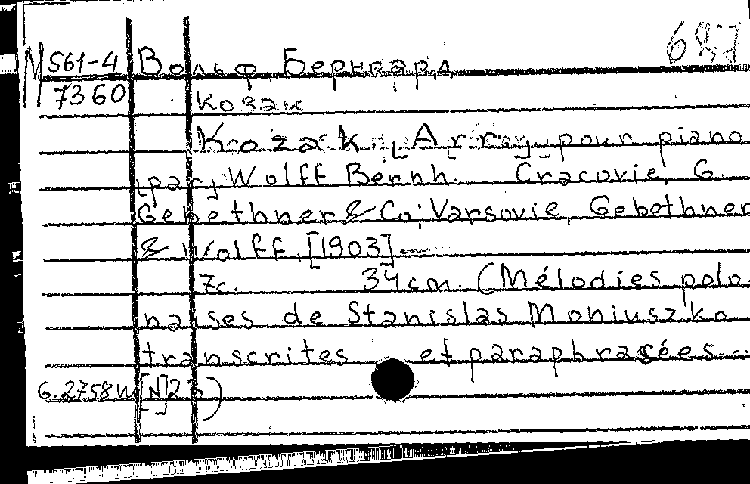 687
М 561-4 Вольф Бернгард
7360 Козак
Kozak. [Arr.] pour piano
[par] Wolff Bernh. Cracovie, G.
Gebethner & Co; Varsovie, Gebethner
& Wolff, [1903].
7с. 34см. (Mélodies polo
naises de Stanislas Moniuszko
transcrites et paraphrasées.
[N]23)